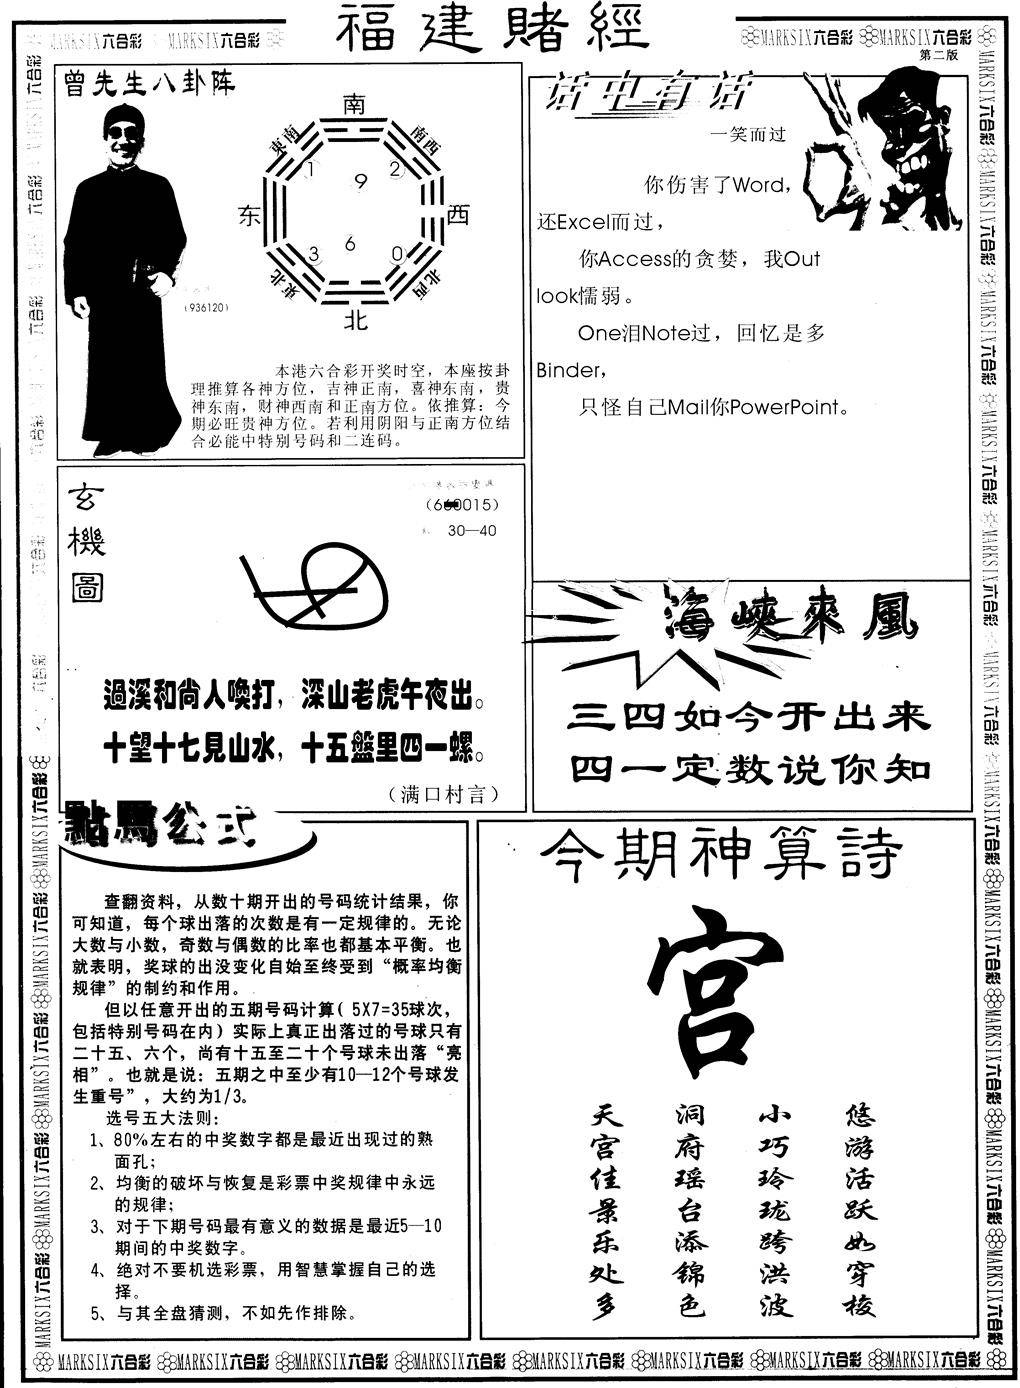 福建賭經
MARKSIX六合彩 MARKSIX六合彩
MARKSIX六合彩 MARKSIX六合彩
第二版
曾先生八卦阵
南
東南
南西
1
9
2
东
西
3
6
0
東北
北西
北
(936120)
本港六合彩开奖时空，本座按卦
理推算各神方位，吉神正南，喜神东南，贵
神东南，财神西南和正南方位。依推算：今
期必旺贵神方位。若利用阴阳与正南方位结
合必能中特别号码和二连码。
话中有话
一笑而过
你伤害了Word，
还Excel而过，
你Access的贪婪，我Out
look懦弱。
One泪Note过，回忆是多
Binder，
只怪自己Mail你PowerPoint。
玄
機
圖
30—40
過溪和尚人喚打，深山老虎午夜出。
十望十七見山水，十五盤里四一螺。
（满口村言）
海峽來風
三四如今开出来
四一定数说你知
點馬公式
查翻资料，从数十期开出的号码统计结果，你
可知道，每个球出落的次数是有一定规律的。无论
大数与小数，奇数与偶数的比率也都基本平衡。也
就表明，奖球的出没变化自始至终受到“概率均衡
规律”的制约和作用。
但以任意开出的五期号码计算( 5X7=35球次，
包括特别号码在内) 实际上真正出落过的号球只有
二十五、六个，尚有十五至二十个号球未出落“亮
相”。也就是说：五期之中至少有10—12个号球发
生重号”，大约为1/3。
选号五大法则：
1、80%左右的中奖数字都是最近出现过的熟
面孔；
2、均衡的破坏与恢复是彩票中奖规律中永远
的规律；
3、对于下期号码最有意义的数据是最近5—10
期间的中奖数字。
4、绝对不要机选彩票，用智慧掌握自己的选
择。
5、与其全盘猜测，不如先作排除。
今期神算詩
宫
天宫佳景乐处多
洞府瑶台添锦色
小巧玲珑跨洪波
悠游活跃如穿梭
MARKSIX六合彩 MARKSIX六合彩 MARKSIX六合彩 MARKSIX六合彩 MARKSIX六合彩 MARKSIX六合彩 MARKSIX六合彩 MARKSIX六合彩